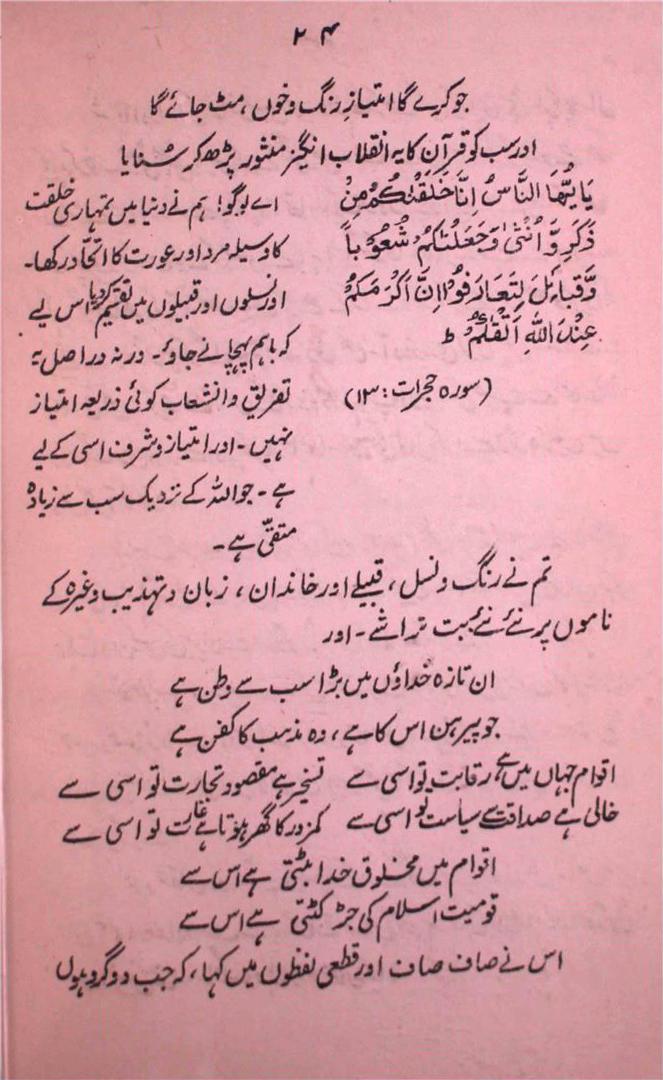 ۲۴
جو کرے گا امتیازِ رنگ و خوں، مٹ جائے گا
اور سب کو قرآن کا یہ انقلاب انگیز منثور پڑھ کر سُنایا
يٰاَيُّهَا النَّاسُ اِنَّا خَلَقْنٰكُمْ مِنْ
ذَكَرٍ وَّ اُنْثٰى وَجَعَلْنٰكُمْ شُعُوْباً
وَّقَبَاءِلَ لِتَعَارَفُوْا اِنَّ اَكْرَمَكُمْ
عِنْدَ اللهِ اَتْقٰكُمْ ط
(سورہ حجرات: ۱۳)
اے لوگو! ہم نے دنیا میں تمہاری خلقت
کا وسیلہ مرد اور عورت کا اتحاد رکھا۔
اور نسلوں اور قبیلوں میں تقسیم کر دیا اس لیے
کہ باہم پہچانے جاؤ۔ ورنہ در اصل یہ
تفریق و انشعاب کوئی ذریعہ امتیاز
نہیں۔ اور امتیاز و شرف اسی کے لیے
ہے۔ جو اللہ کے نزدیک سب سے زیادہ
متقی ہے۔
تم نے رنگ و نسل، قبیلے اور خاندان، زبان و تہذیب وغیرہ کے
ناموں پر نئے نئے بُت تراشے۔ اور
ان تازہ خُداؤں میں بڑا سب سے وطن ہے
جو پیرہن اس کا ہے، وہ مذہب کا کفن ہے
اقوام جہاں میں ہے رقابت تو اسی سے تسخیر ہے مقصود تجارت تو اسی سے
خالی ہے صداقت سے سیاست تو اسی سے کمزور کا گھر ہوتا ہے غارت تو اسی سے
اقوام میں مخلوق خدا بٹتی ہے اس سے
قومیت اسلام کی جڑ کٹتی ہے اس سے
اس نے صاف صاف اور قطعی لفظوں میں کہا، کہ جب دو گروہوں